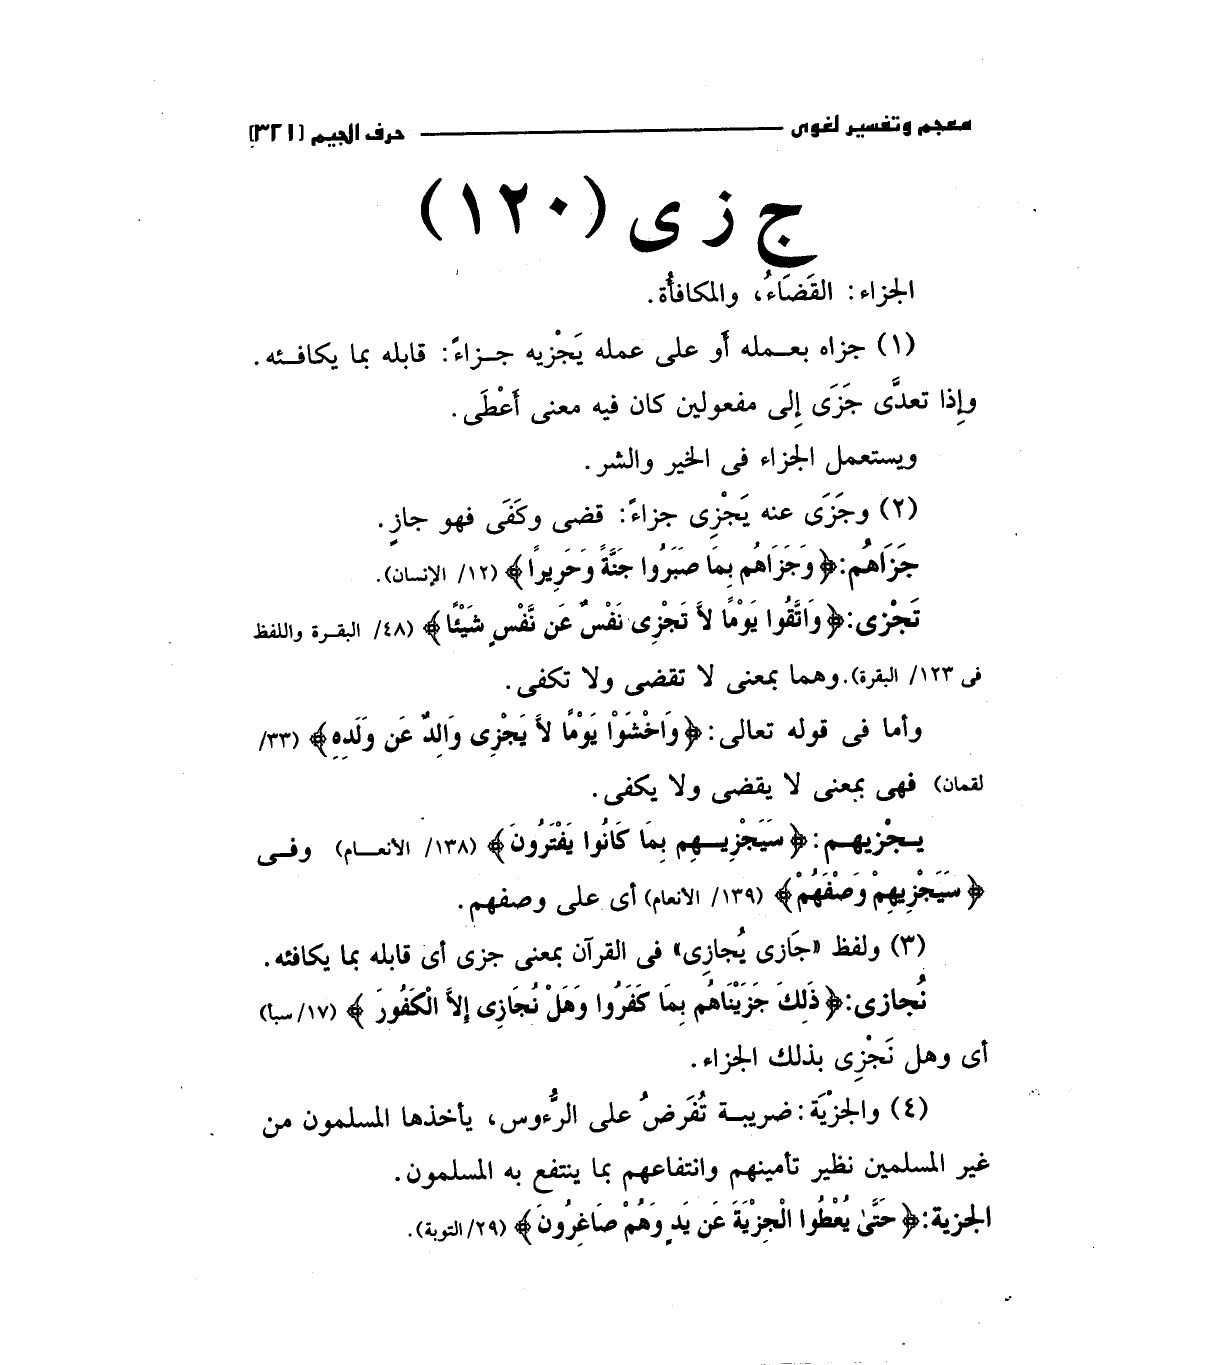 معجم وتفسير لغوى حرف الجيم [٣٢١]
ج ز ى (١٢٠)
الجزاء: القَضَاءُ، والمكافأُة.
(١) جزاه بعـمله أَو على عمله يَجْزيه جـزاءً: قابله بما يكافـئه.
وإِذا تعدَّى جَزَى إِلى مفعولين كان فيه معنى أَعْطَى.
ويستعمل الجزاء فى الخير والشر.
(٢) وجَزَى عنه يَجْزِى جزاءً: قضى وكَفَى فهو جازٍ.
جَزَاهُم: ﴿وَجَزَاهُم بِمَا صَبَرُوا جَنَّةً وَحَرِيرًا﴾ (١٢/ الإنسان).
تَجْزى: ﴿وَاتَّقُوا يَوْمًا لاَّ تَجْزِى نَفْسٌ عَن نَّفْسٍ شَيْئًا﴾ (٤٨/ البقـرة واللفظ
فى ١٢٣/ البقرة). وهما بمعنى لا تقضى ولا تكفى.
وأما فى قوله تعالى: ﴿وَاخْشَوْا يَوْمًا لاَّ يَجْزِى وَالِدٌ عَن وَلَدِهِ﴾ (٣٣/
لقمان) فهى بمعنى لا يقضى ولا يكفى.
يـجْزيهـم: ﴿سَيَجْزِيـهِم بِمَا كَانُوا يَفْتَرُونَ﴾ (١٣٨/ الأنعـام) وفـى
﴿سَيَجْزِيهِمْ وَصْفَهُمْ﴾ (١٣٩/ الأنعام) أى على وصفهم.
(٣) ولفظ «جَازى يُجازِى» فى القرآن بمعنى جزى أى قابله بما يكافئه.
نُجازى: ﴿ذَلِكَ جَزَيْنَاهُم بِمَا كَفَرُوا وَهَلْ نُجَازِى إِلاَّ الْكَفُورَ﴾ (١٧/ سبأ)
أى وهل نَجْزِى بذلك الجزاء.
(٤) والجزْيَة: ضريبـة تُفَرضُ على الرُّءوس، يأخذها المسلمون من
غير المسلمين نظير تأمينهم وانتفاعهم بما ينتفع به المسلمون.
الجزية: ﴿حَتَّىٰ يُعْطُوا الْجِزْيَةَ عَن يَدٍ وَهُمْ صَاغِرُونَ﴾ (٢٩/ التوبة).